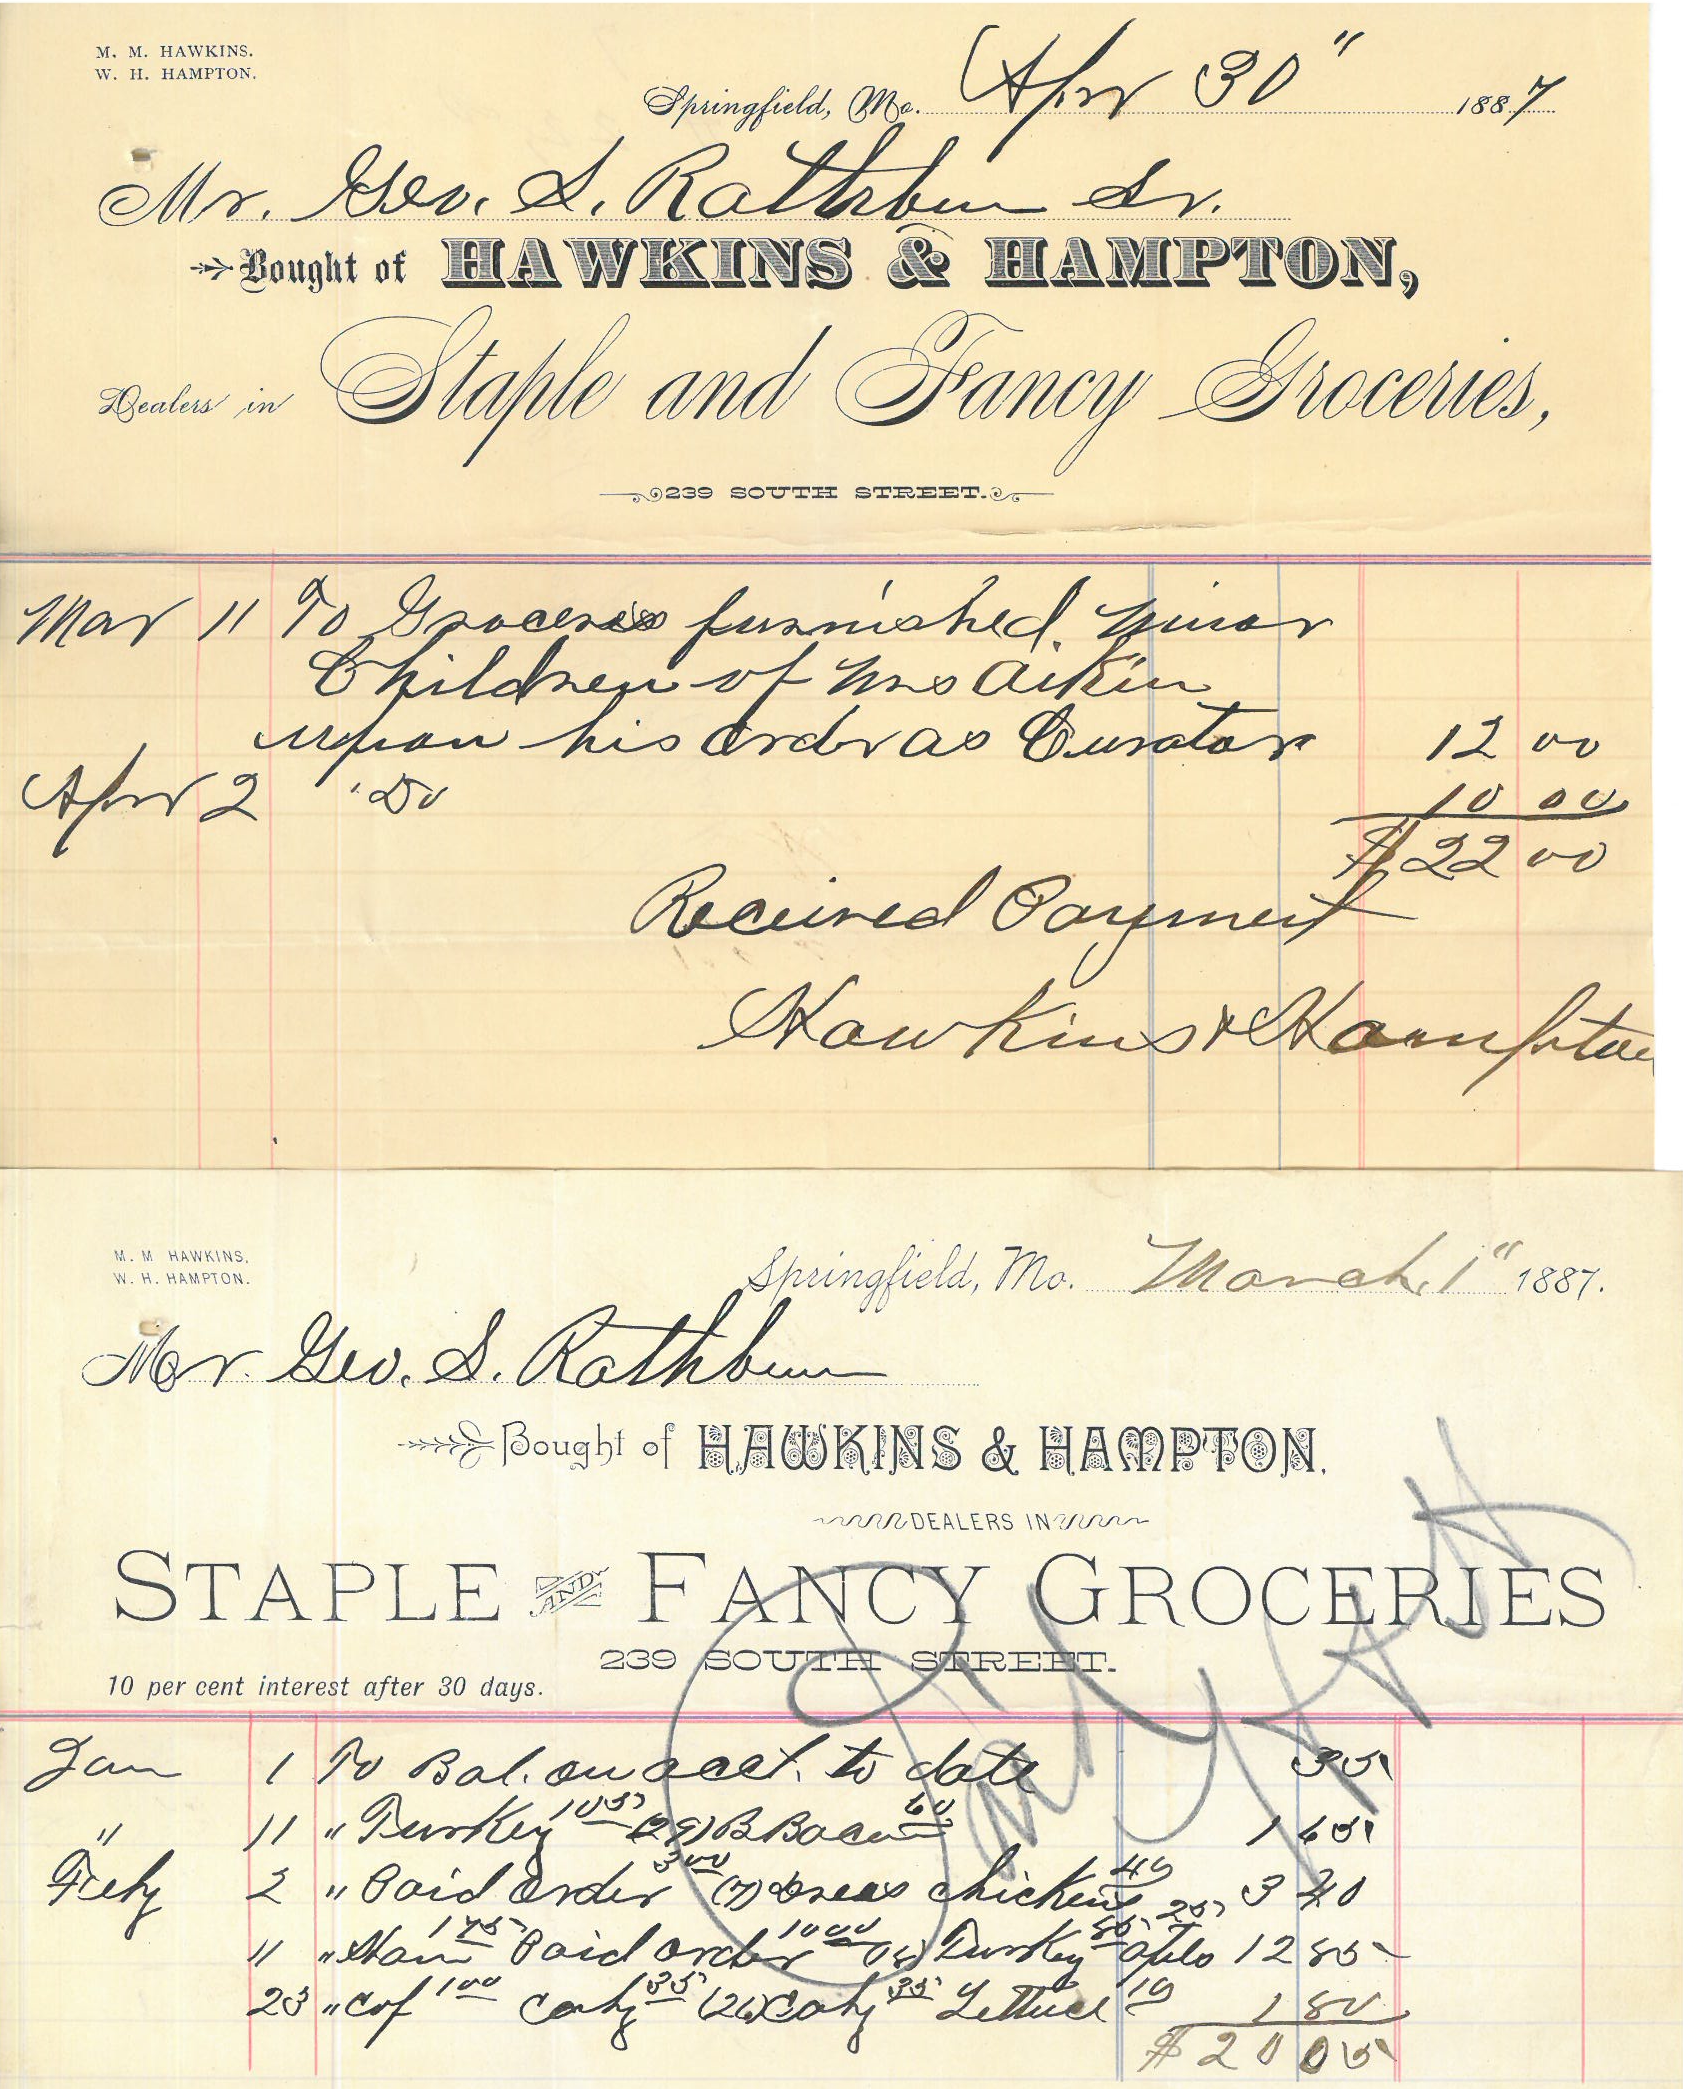 M. M. HAWKINS.
W. H. HAMPTON.
Springfield, Mo. Apr 30" 1887
Mr. Geo. S. Rathbun Sr.
Bought of HAWKINS & HAMPTON,
Dealers in Staple and Fancy Groceries,
239 SOUTH STREET.
Mar 11 To Groceries furnished minor
Children of Mrs Aikin
upon his order as Curator 12 00
Apr 2 " Do 10 00
$ 22 00
Received Payment
Hawkins & Hampton
M. M HAWKINS,
W. H. HAMPTON.
Springfield, Mo. March 1" 1887.
Mr. Geo. S. Rathbun
Bought of HAWKINS & HAMPTON.
DEALERS IN
STAPLE AND FANCY GROCERIES
239 SOUTH STREET.
10 per cent interest after 30 days.
Jan 1 To Bal. on acct. to date 35
" 11 " Turkey 105 (29) B Bacon 60 1 65
Feby 2 " Paid Order 300 (7) chickens 40 3 40
11 " Ham 175 Paid order 1000 Turkey 85 25 12 85
23 " Cof 100 35 (26) 35 Lettuce 10 1 80
$ 20 05